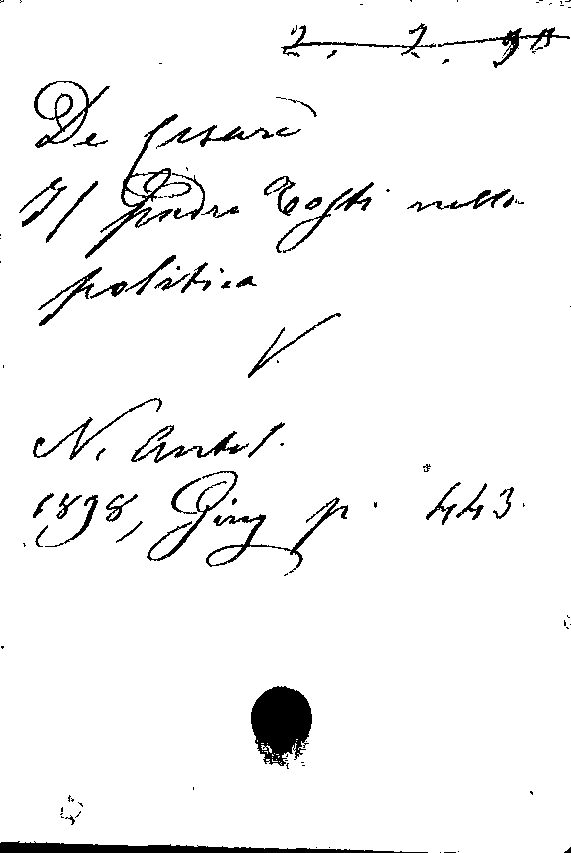 2. 2. 90
De Cesare
Il Padre Tosti nella
politica
V.
N. Antol.
1898, Giug p. 443.